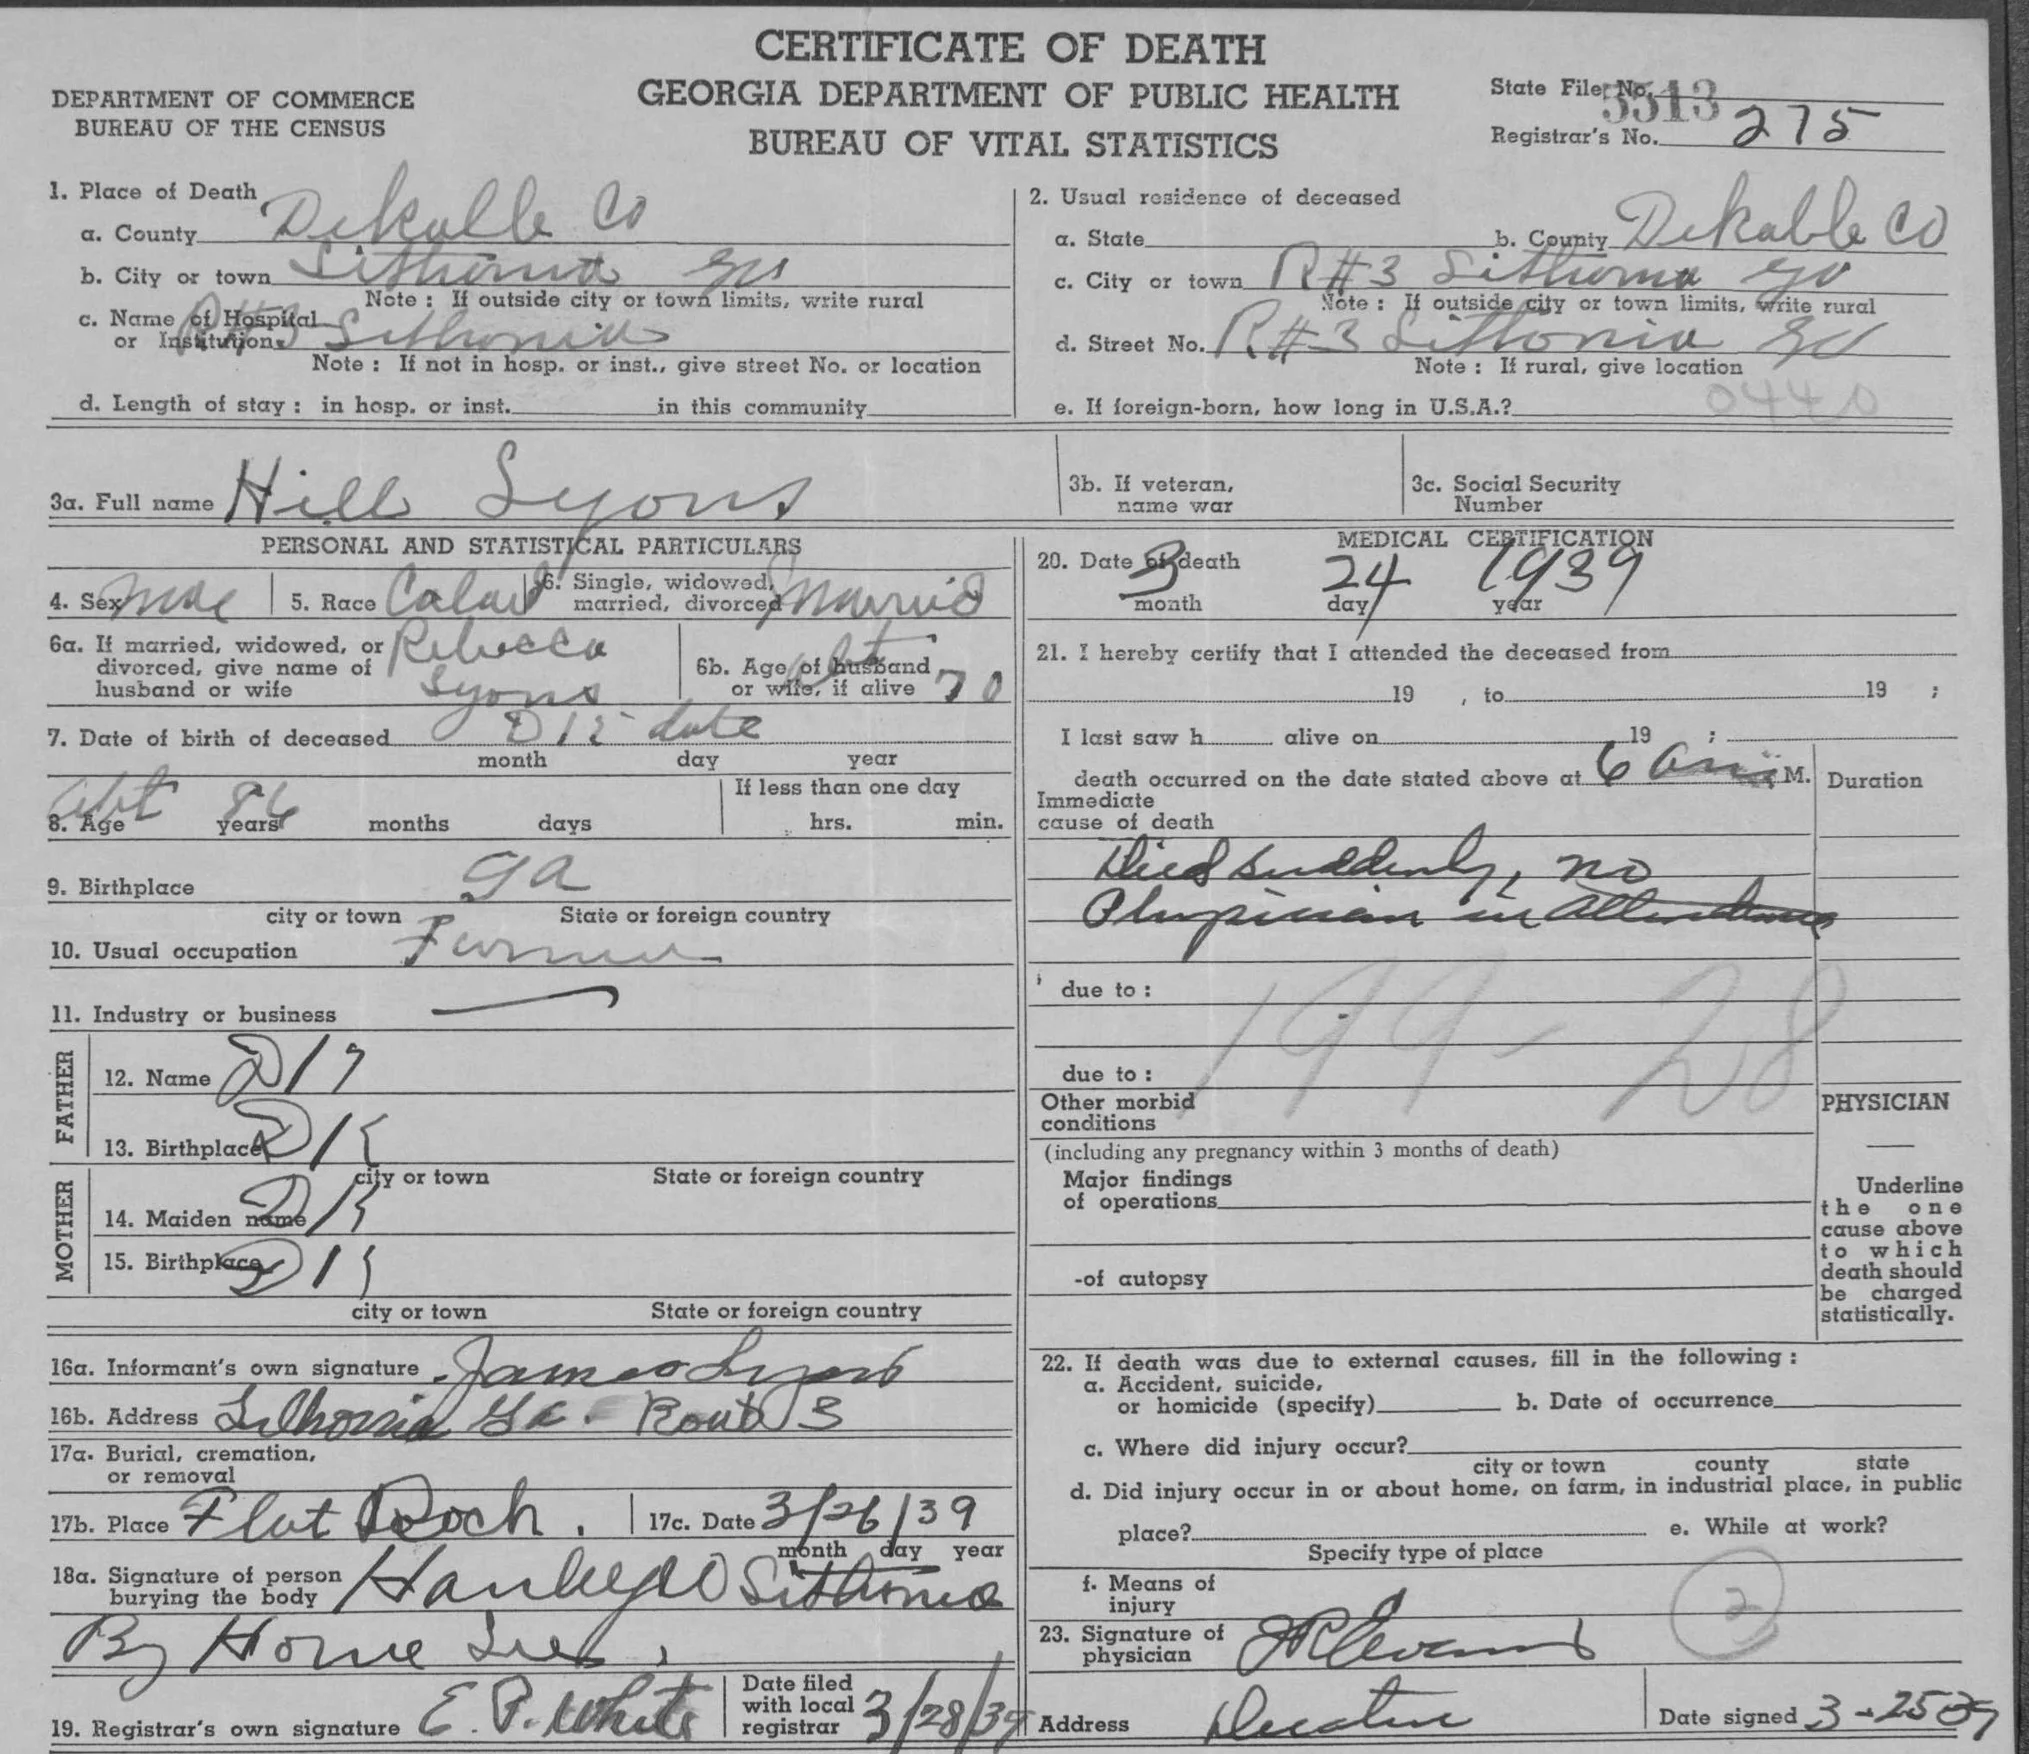 CERTIFICATE OF DEATH
DEPARTMENT OF COMMERCE
BUREAU OF THE CENSUS
GEORGIA DEPARTMENT OF PUBLIC HEALTH
BUREAU OF VITAL STATISTICS
State File No. 5513
Registrar's No. 275
1. Place of Death
a. County DeKalb Co
b. City or town Lithonia Ga
Note: If outside city or town limits, write rural
c. Name of Hospital
or Institution R#3 Lithonia
Note: If not in hosp. or inst., give street No. or location
d. Length of stay: in hosp. or inst. in this community
2. Usual residence of deceased
a. State b. County DeKalb Co
c. City or town R#3 Lithonia Ga
Note: If outside city or town limits, write rural
d. Street No. R#3 Lithonia Ga
Note: If rural, give location
0440
e. If foreign-born, how long in U.S.A.?
3a. Full name Hill Lyons
3b. If veteran,
name war
3c. Social Security
Number
PERSONAL AND STATISTICAL PARTICULARS
4. Sex Male 5. Race 6. Single, widowed,
married, divorced Married
6a. If married, widowed, or
divorced, give name of
husband or wife Rebecca
Lyons
6b. Age of husband
or wife, if alive abt 70
7. Date of birth of deceased D K date
month day year
abt 86
8. Age years months days
If less than one day
hrs. min.
9. Birthplace Ga
city or town State or foreign country
10. Usual occupation Farmer
11. Industry or business
FATHER
12. Name D K
13. Birthplace D K
city or town State or foreign country
MOTHER
14. Maiden name D K
15. Birthplace D K
city or town State or foreign country
16a. Informant's own signature James Lyons
16b. Address Lithonia Ga. Route 3
17a. Burial, cremation,
or removal
17b. Place Flat Rock. 17c. Date 3/26/39
month day year
18a. Signature of person
burying the body Lithonia
By
19. Registrar's own signature E. P. White
Date filed
with local
registrar 3/28/39
MEDICAL CERTIFICATION
20. Date of death 3 24 1939
month day year
21. I hereby certify that I attended the deceased from
19 , to 19 ;
I last saw h alive on 19 ;
death occurred on the date stated above at 6 am M.
Duration
Immediate
cause of death
Died suddenly, no
Physician in attendance
due to:
199-28
due to:
Other morbid
conditions
(including any pregnancy within 3 months of death)
Major findings
of operations
-of autopsy
PHYSICIAN
Underline
the one
cause above
to which
death should
be charged
statistically.
22. If death was due to external causes, fill in the following:
a. Accident, suicide,
or homicide (specify) b. Date of occurrence
c. Where did injury occur?
city or town county state
d. Did injury occur in or about home, on farm, in industrial place, in public
place? e. While at work?
Specify type of place
f. Means of
injury
2
23. Signature of
physician Evans
Address Decatur Date signed 3-25 39